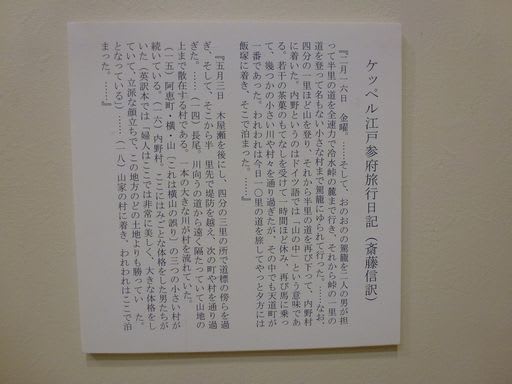 ケッペル江戸参府旅行日記（斎藤信訳）
『二月一六日　金曜。……そして、おのおのの駕籠を二人の男が担
って半里の道を全速力で冷水峠の麓まで行き、それから峠の一里の
道を登って名もない小さな村まで駕籠にゆられて行った。……なお、
四分の一里ほど山を登り、それから半里の道を再び下って、内野村
に着いた。内野というのはドイツ語では「山の中」という意味であ
る。若干の茶菓のもてなしを受けて一時間ほど休み、再び馬に乗っ
て、幾つかの小さい川や村々を通り過ぎたが、その中でも天道町が
一番であった。われわれは今日一〇里の道を旅してやっと夕方には
飯塚に着き、そこで泊まった。』
『五月三日　木屋瀬を後にし、四分の三里の所で道標の傍らを過
ぎ、そして、そこから半　里先で堤防を越え、次の町や村を通り過
ぎた。……（一四）長尾、川向うの道から遠く隔たっていて山地の
上まで散在する村である。一本の大きな川が村を流れていた。
（一五）阿恵町・横・山（これは横山の誤り）の三つの小さい村が
続いている。（一六）内野村。ここにはみごとな体格をした男たちが
いた（英訳本では「婦人はここでは非常に美しく、大きな体格をし
ていて、立派な顔立ちで、この地方のどの土地よりも勝ってい　た。」
となっている）……（一八）山家の村に着き、われわれはここで泊
まった。……』